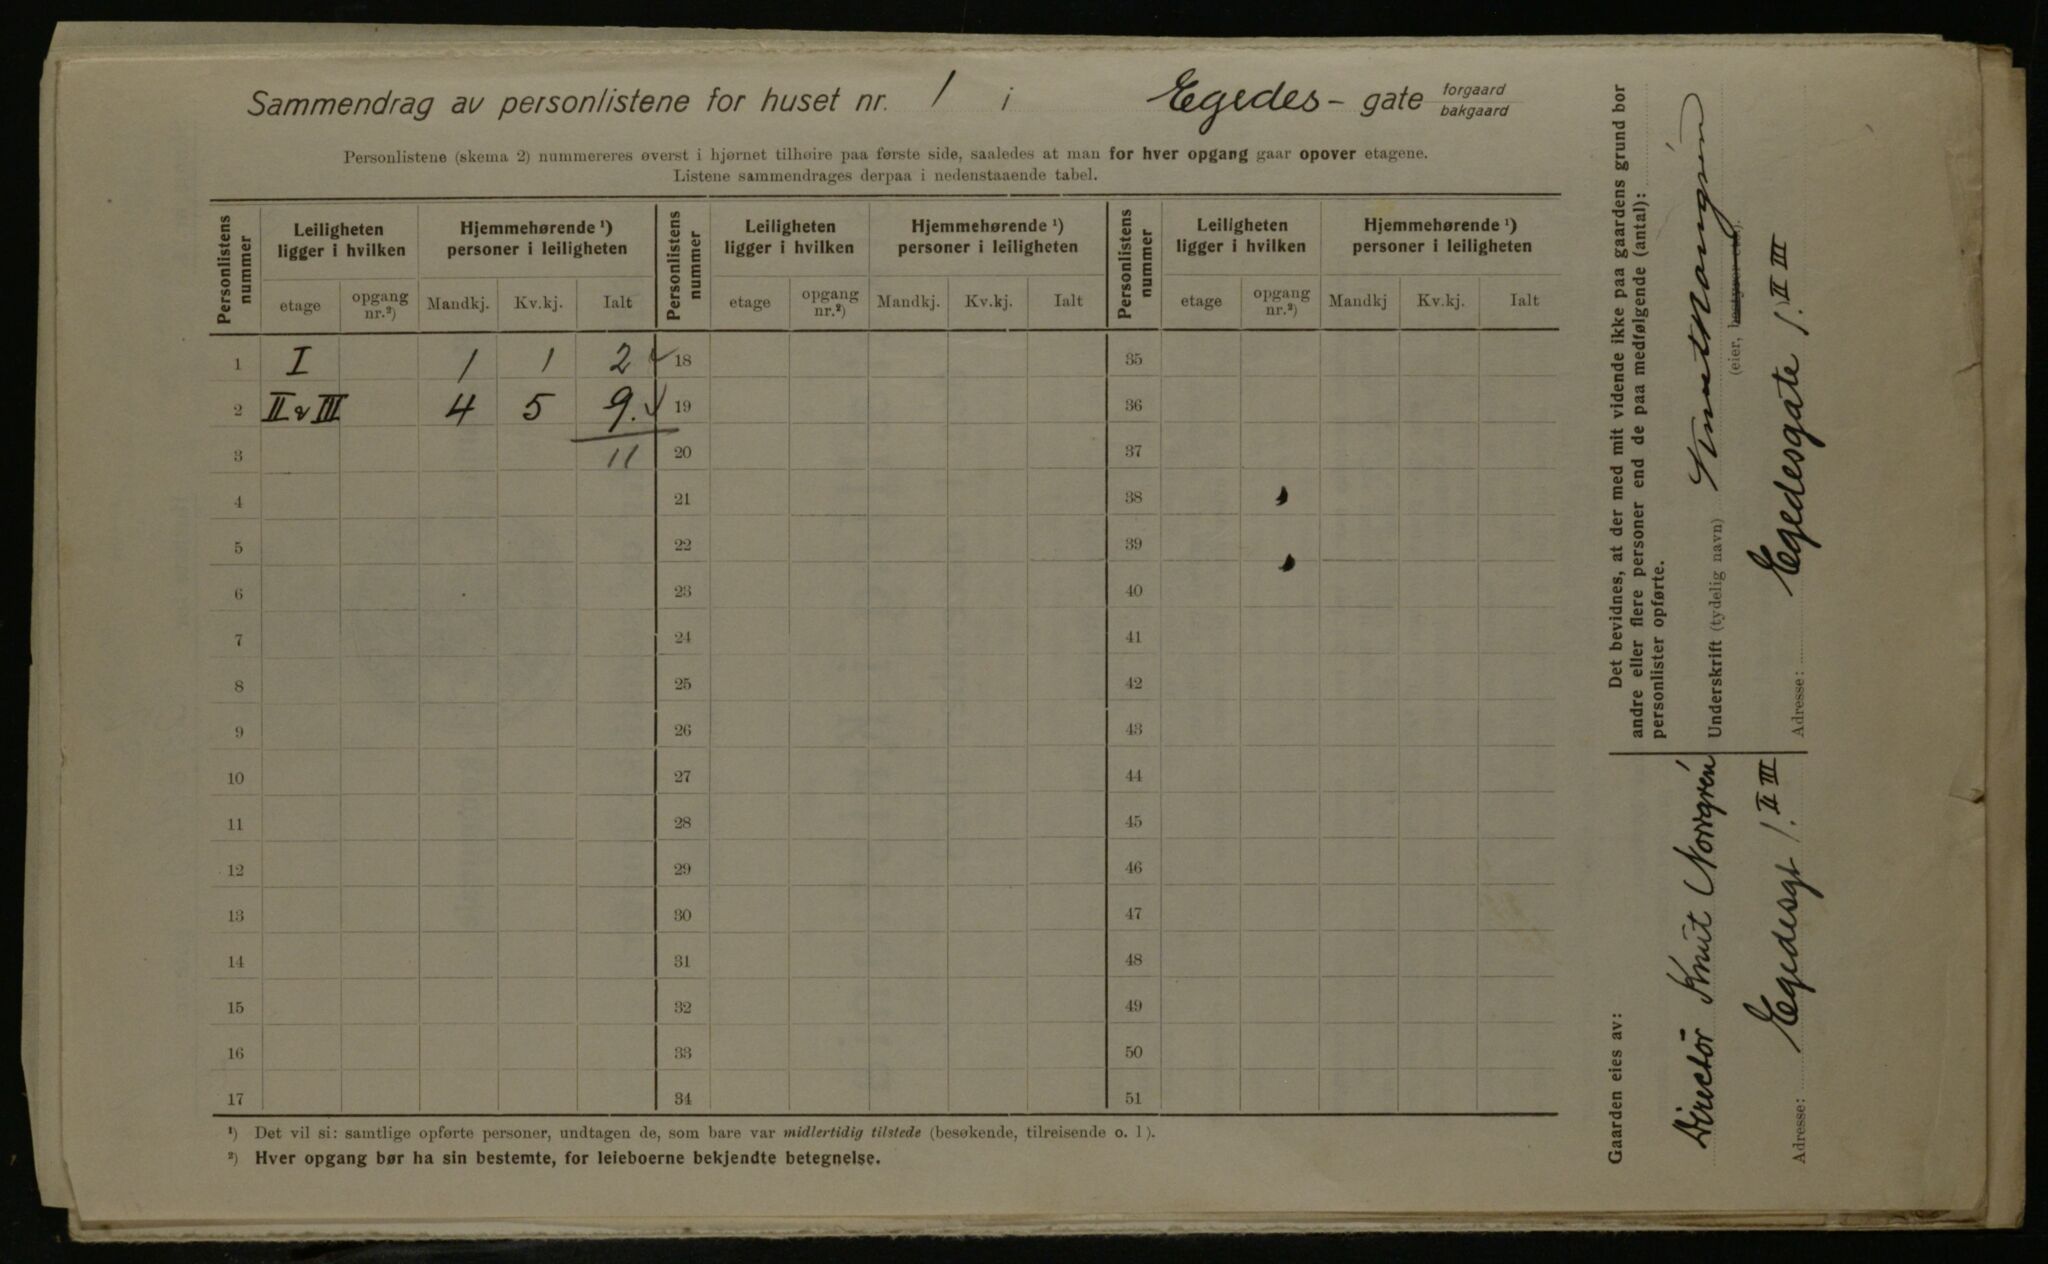 Sammendrag av personlistene for huset nr. 1 i Egedes- gate forgaard
bakgaard
Personlistene (skema 2) nummereres øverst i hjørnet tilhøire paa første side, saaledes at man for hver opgang gaar opover etagene.
Listene sammendrages derpaa i nedenstaaende tabel.
Personlistens nummer | Leiligheten ligger i hvilken | Hjemmehørende ¹) personer i leiligheten | Personlistens nummer | Leiligheten ligger i hvilken | Hjemmehørende ¹) personer i leiligheten | Personlistens nummer | Leiligheten ligger i hvilken | Hjemmehørende ¹) personer i leiligheten
etage | opgang nr.²) | Mandkj. | Kv.kj. | Ialt | etage | opgang nr.²) | Mandkj. | Kv.kj. | Ialt | etage | opgang nr.²) | Mandkj | Kv.kj. | Ialt
1 I 1 1 2 ✓ 18 35
2 II & III 4 5 9. ✓ 19 36
3 11 20 37
4 21 38
5 22 39
6 23 40
7 24 41
8 25 42
9 26 43
10 27 44
11 28 45
12 29 46
13 30 47
14 31 48
15 32 49
16 33 50
17 34 51
¹) Det vil si: samtlige opførte personer, undtagen de, som bare var midlertidig tilstede (besøkende, tilreisende o. l).
²) Hver opgang bør ha sin bestemte, for leieboerne bekjendte betegnelse.
Det bevidnes, at der med mit vidende ikke paa gaardens grund bor
andre eller flere personer end de paa medfølgende (antal):
personlister opførte.
Underskrift (tydelig navn) Knut Norrgrén
(eier, bestyrer etc.).
Adresse: Egedesgate 1. II III
Gaarden eies av:
Director Knut Norrgrén
Adresse: Egedesgt 1. II III